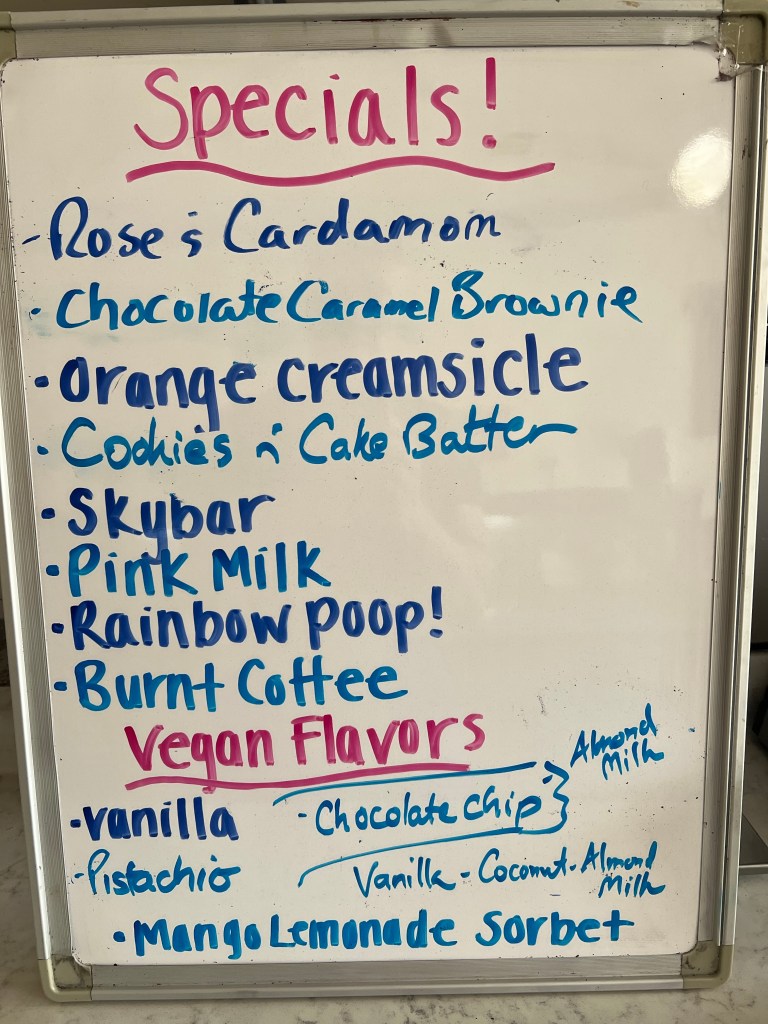 Specials!
- Rose & Cardamom
· Chocolate Caramel Brownie
· Orange Creamsicle
· Cookies n' Cake Batter
· Skybar
· Pink Milk
· Rainbow Poop!
· Burnt Coffee
Vegan Flavors
· Vanilla - Chocolate Chip } Almond Milk
- Pistachio Vanilla - Coconut - Almond Milk
· Mango Lemonade Sorbet